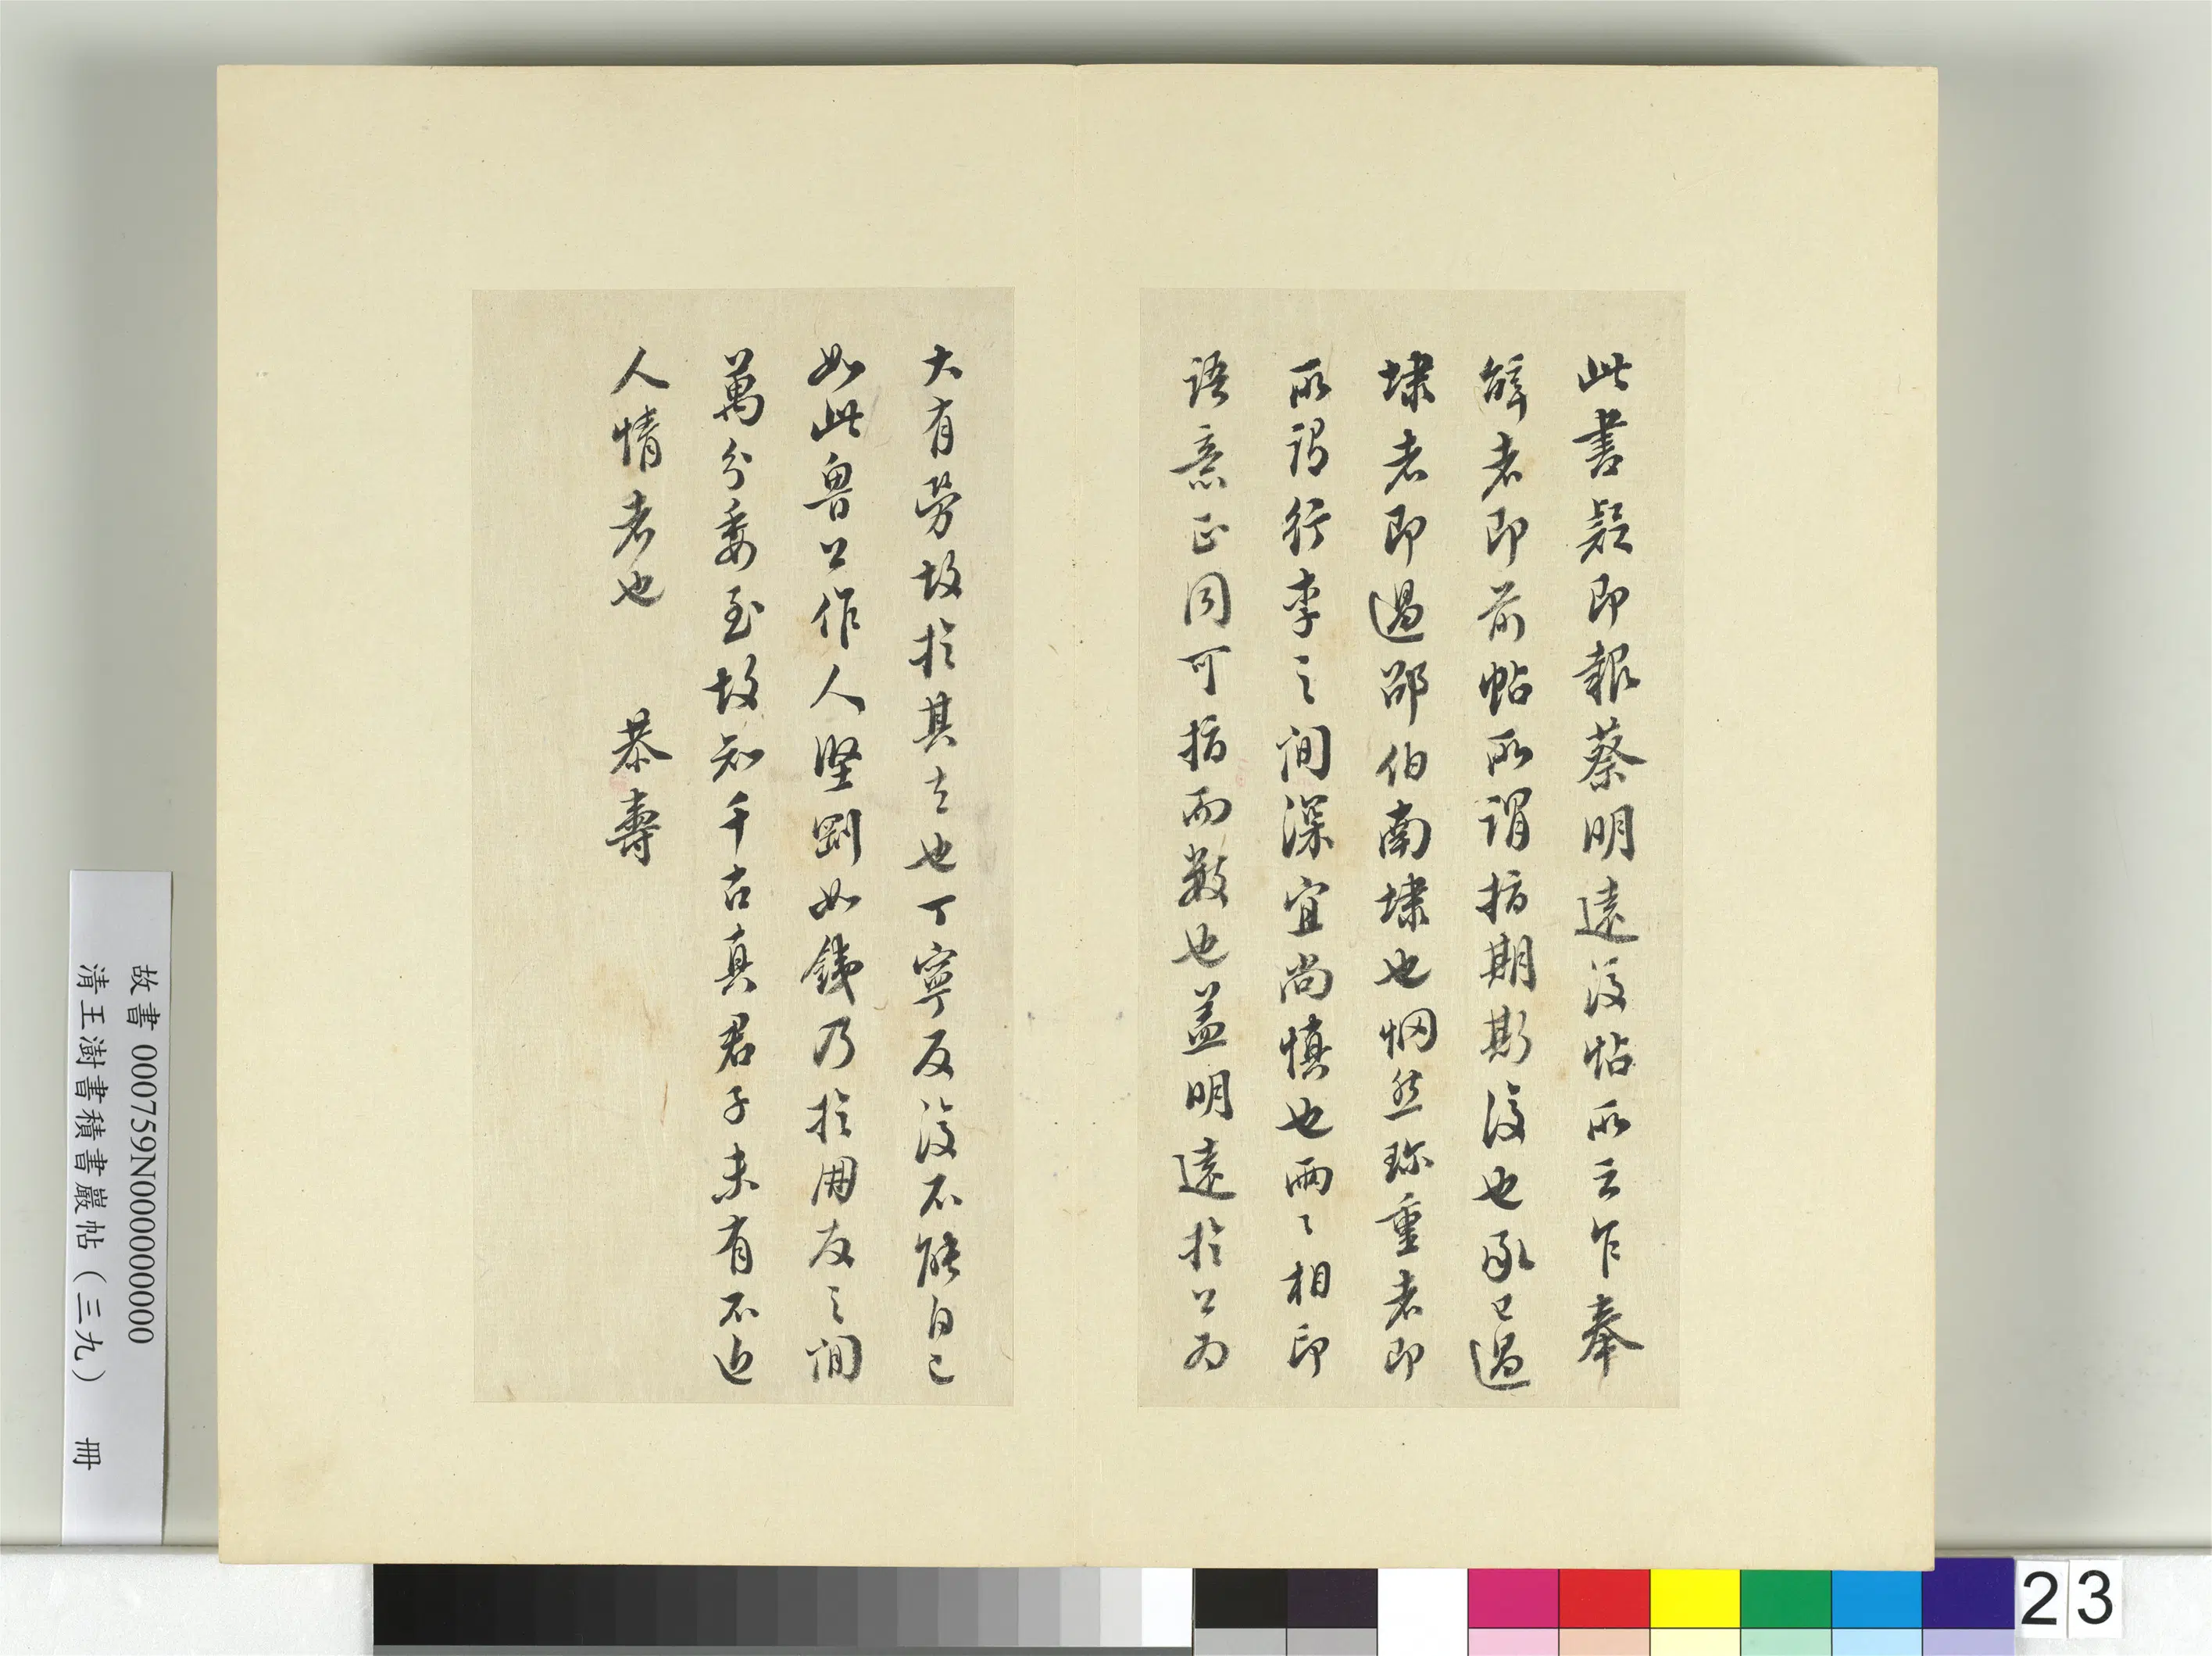 此書疑即報蔡明遠後帖所云乍奉
辭者即前帖所謂指期斯復也承已過
埭者即過邵伯南埭也惘然珎重者即
所謂行李之間深宜尚慎也兩〻相印
語意正同可指而數也蓋明遠於公為
大有勞故於其去也丁寧反復不能自已
如此魯公作人堅剛如鐵乃於朋友之間
萬分委至故知千古真君子未有不近
人情者也　恭壽
故書 000759N000000000
清王澍書積書巖帖（三九）　冊
23